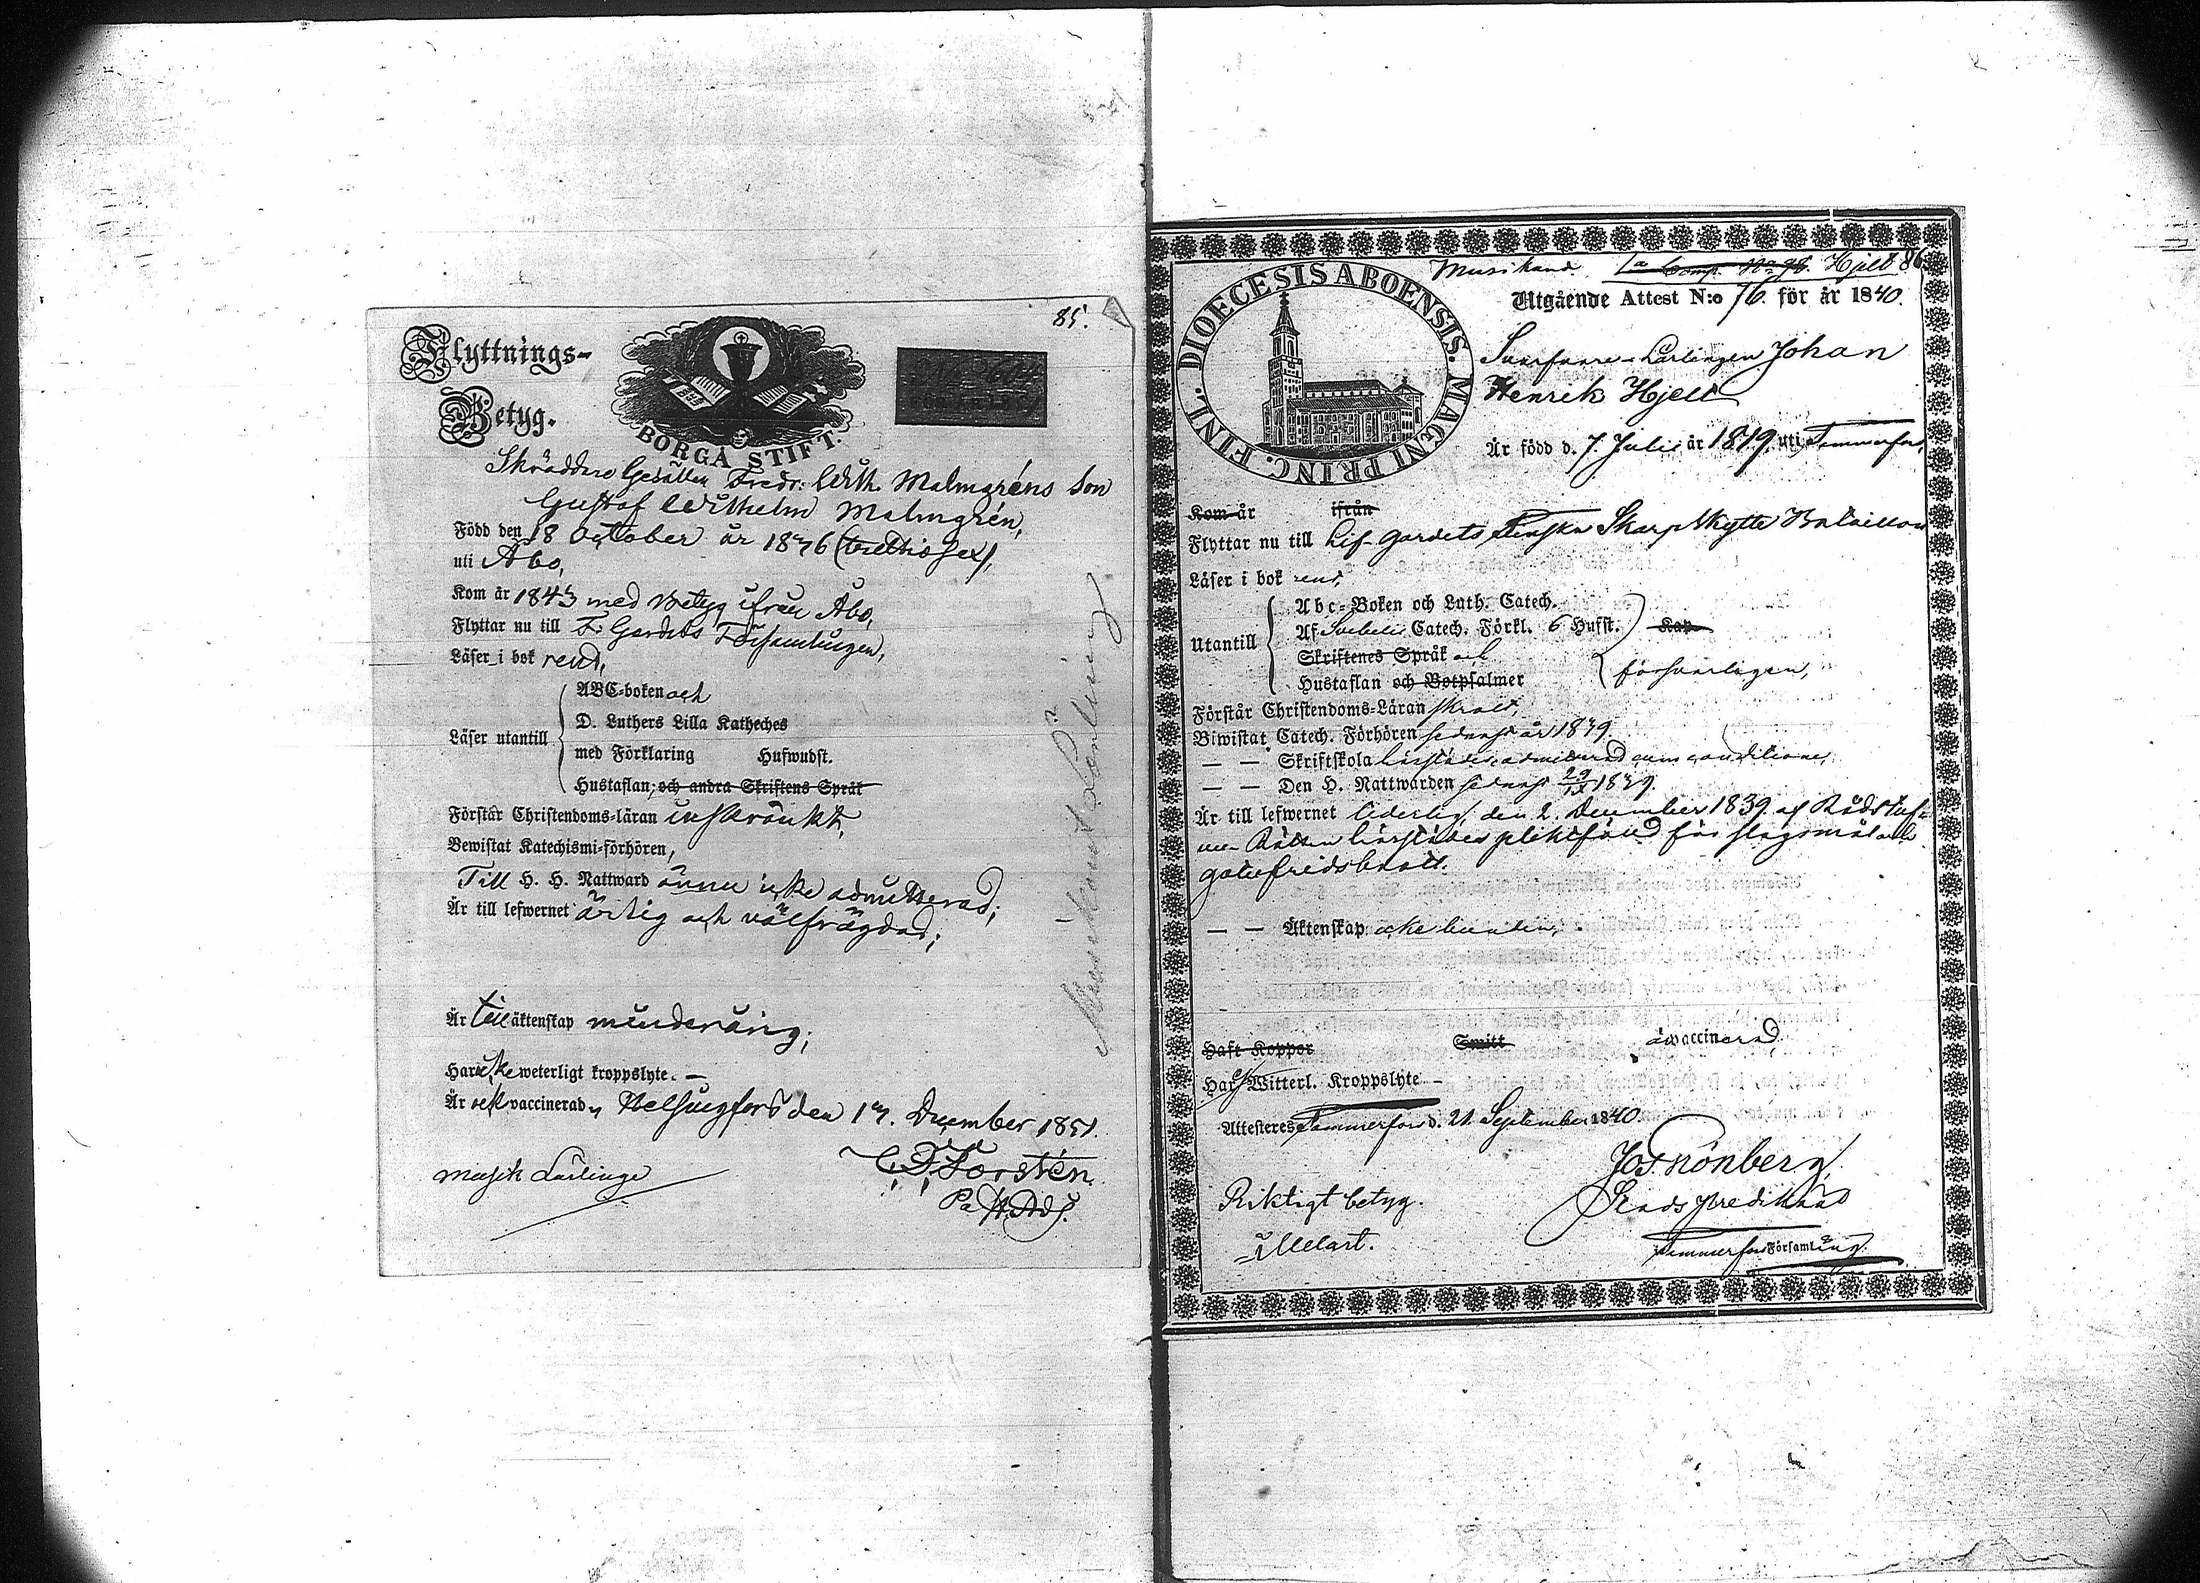 85.
Flyttnings-
Betyg.
BORGÅ STIFT.
Skräddare Gesällen Fredr: Wilh. Malmgréns Son
Gustaf Wilhelm Malmgrén,
Född den 18 October år 1836 (trettiosex),
uti Åbo,
Kom år 1843 med Betyg ifrån Åbo,
Flyttar nu till F. Gardets Församlingen,
Läser i bok rent,
ABC-boken och
D. Luthers Lilla Katheches
Läser utantill
med Förklaring Hufwudst.
Hustaflan, och andra Skriftens Språk
Förstår Christendoms-läran inskränkt,
Bewistat Katechismi-förhören,
Till H. H. Nattward ännu icke admitterad;
Är till lefwernet ärlig och välfrägdad;
Är till äktenskap minderårig;
Har icke weterligt kroppslyte. —
Är och vaccinerad, Helsingfors den 13. December 1851.
C. D. Forstén.
Musik Lärlinge
Musikant Lärling
Musikand 1a Comp. No 98. Hjelt 86
DIOECESIS ABOENSIS. MAGNI PRINC. FINL.
Utgående Attest N:o 76 för år 1840.
Svarfvare-Lärlingen Johan
Henrik Hjelt
Är född d. 7 Julii år 1819 uti Tammerfors,
Kom år ifrån
Flyttar nu till Lif-gardets Finska Skarpskytte Bataillon
Läser i bok rent,
Abc-Boken och Luth. Catech.
Utantill
Af Svebelii Catech. Förkl. 6 Hufst. Kap
Skriftenes Språk och
Hustaflan och Botpsalmer
försvarligen,
Förstår Christendoms-Läran skralt,
Biwistat Catech. Förhören sednast år 1839.
— — Skriftskola härstädes admitterad cum conditione,
— — Den H. Nattwarden sednast 29/IX 1839.
Är till lefwernet liderlig, den 2. December 1839 af Rådstufvu-
Rätten härstädes pliktfäld för slagsmål och
gatufridsbrott.
— — Äktenskap icke bunden,
Haft Koppor Smitt är vaccinerad
Har Witterl. Kroppslyte —
Attesteras Tammerfors d. 21. September 1840.
Jos. Grönberg
Stads Predikand
Tammerfors Församling.
Riktigt betyg.
Melart.